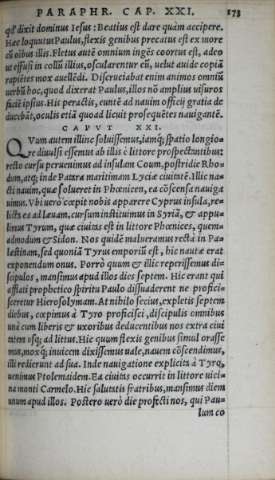 PARAPHR. CAP. XXI. 173
qđ dixit dominus Iesus: Beatius est dare quàm accipere.
Hæc loquutus Paulus, flexis genibus precatus est ex more
cū oibus illis. Fletus autē omnium ingēs coortus est, adeo
ut effusi in collū illius, oscularentur eū, uelut auide copiā
rapiētes mox auellēdi. Discruciabat enim animos omniū
uerbū hoc, quod dixerat Paulus, illos nō amplius uisuros
faciē ipsius. His peractis, euntē ad nauim officij gratia de
ducebāt, oculis etiā quoad licuit prosequētes nauigantē.
CAPVT XXI.
QVum autem illinc soluissemus, iamq; spatio longio=
re diuulsi essemus ab illis è littore prospectantibus:
recto cursu peruenimus ad insulam Coum, postridie Rho=
dum, atq; inde Patara maritimam Lyciæ ciuitatē. Illic na=
cti nauim, quæ solueret in Phœnicen, ea cōscensa nauiga
uimus. Vbi uerò cœpit nobis apparere Cyprus insula, re=
licta ea ad læuam, cursum instituimus in Syriā, & appu=
limus Tyrum, quæ ciuitas est in littore Phœnices, quem=
admodum & Sidon. Nos quidē malueramus rectà in Pa=
lestinam, sed quoniā Tyrus emporiū est, hic nautæ erat
exponendum onus. Porrò quum & illic reperissemus di=
scipulos, mansimus apud illos dies septem. Hic erant qui
afflati prophetico spiritu Paulo dissuaderent ne profici=
sceretur Hierosolymam. At nihilo secius, expletis septem
diebus, cœpimus à Tyro proficisci, discipulis omnibus
unà cum liberis & uxoribus deducentibus nos extra ciui
tatem usq; ad littus. Hic quum flexis genibus simul orasse
mus, moxq́; inuicem dixissemus uale, nauem cōscendimus,
illi redierunt ad sua. Inde nauigatione explicita à Tyro,
uenimus Ptolemaidem. Ea ciuitas occurrit in littore uici=
na monti Carmelo. Hic salutatis fratribus, mansimus diem
unum apud illos. Postero uerò die profecti nos, qui Pau=
lum co